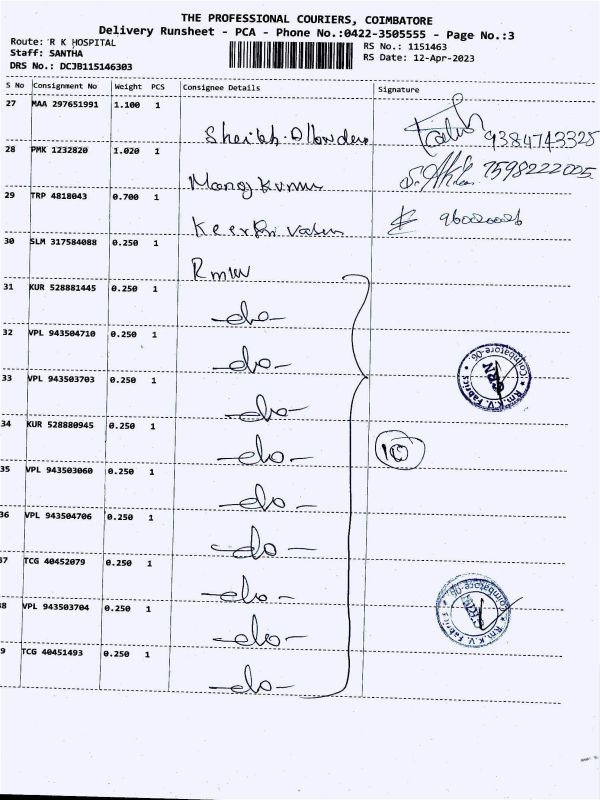 THE PROFESSIONAL COURIERS, COIMBATORE
Delivery Runsheet - PCA - Phone No.:0422-3505555 - Page No.:3
Route: R K HOSPITAL
RS No.: 1151463
Staff: SANTHA
RS Date: 12-Apr-2023
DRS No.: DCJB115146303
S No Consignment No Weight PCS Consignee Details Signature
27 MAA 297651991 1.100 1
Sheikh 9384743325
28 PMK 1232820 1.020 1
Manoj Kumar 7598222005
29 TRP 4818043 0.700 1
Keerthi
30 SLM 317584088 0.250 1
31 KUR 528881445 0.250 1
-do-
32 VPL 943504710 0.250 1
-do-
Rm.K.V. Fabrics Coimbatore-06
33 VPL 943503703 0.250 1
-do-
34 KUR 528880945 0.250 1
-do- 10
35 VPL 943503060 0.250 1
-do-
36 VPL 943504706 0.250 1
-do-
37 TCG 40452079 0.250 1
-do-
Rm.K.V. Fabrics Coimbatore-06
38 VPL 943503704 0.250 1
-do-
9 TCG 40451493 0.250 1
-do-